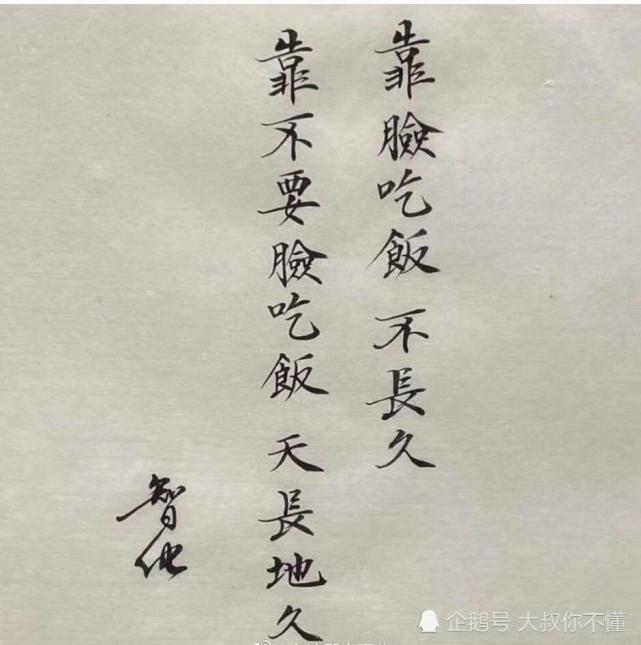 靠臉吃飯 不長久
靠不要臉吃飯 天長地久
企鹅号 大叔你不懂